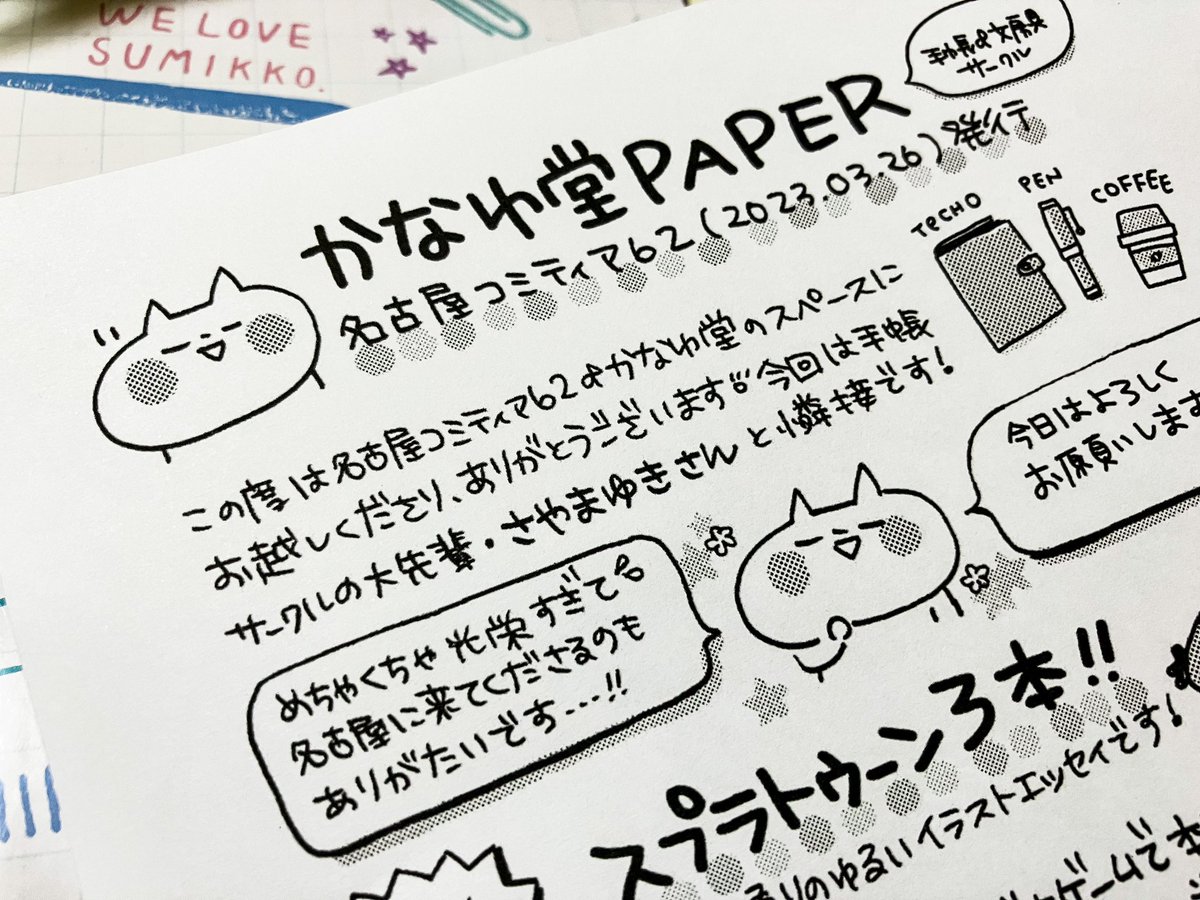 WE LOVE
SUMIKKO.
手帳&文房具
サークル
かなわ堂PAPER
名古屋コミティア62(2023.03.26)発行
TECHO
PEN
COFFEE
この度は名古屋コミティア62&かなわ堂のスペースに
お越しくださり、ありがとうございます 今回は手帳
サークルの大先輩・さやまゆきさんと隣接です!
今日はよろしく
お願いします
めちゃくちゃ光栄すぎて
名古屋に来てくださるのも
ありがたいです...!!
スプラトゥーン3本!!
のゆるいイラストエッセイです!
ゲームで本